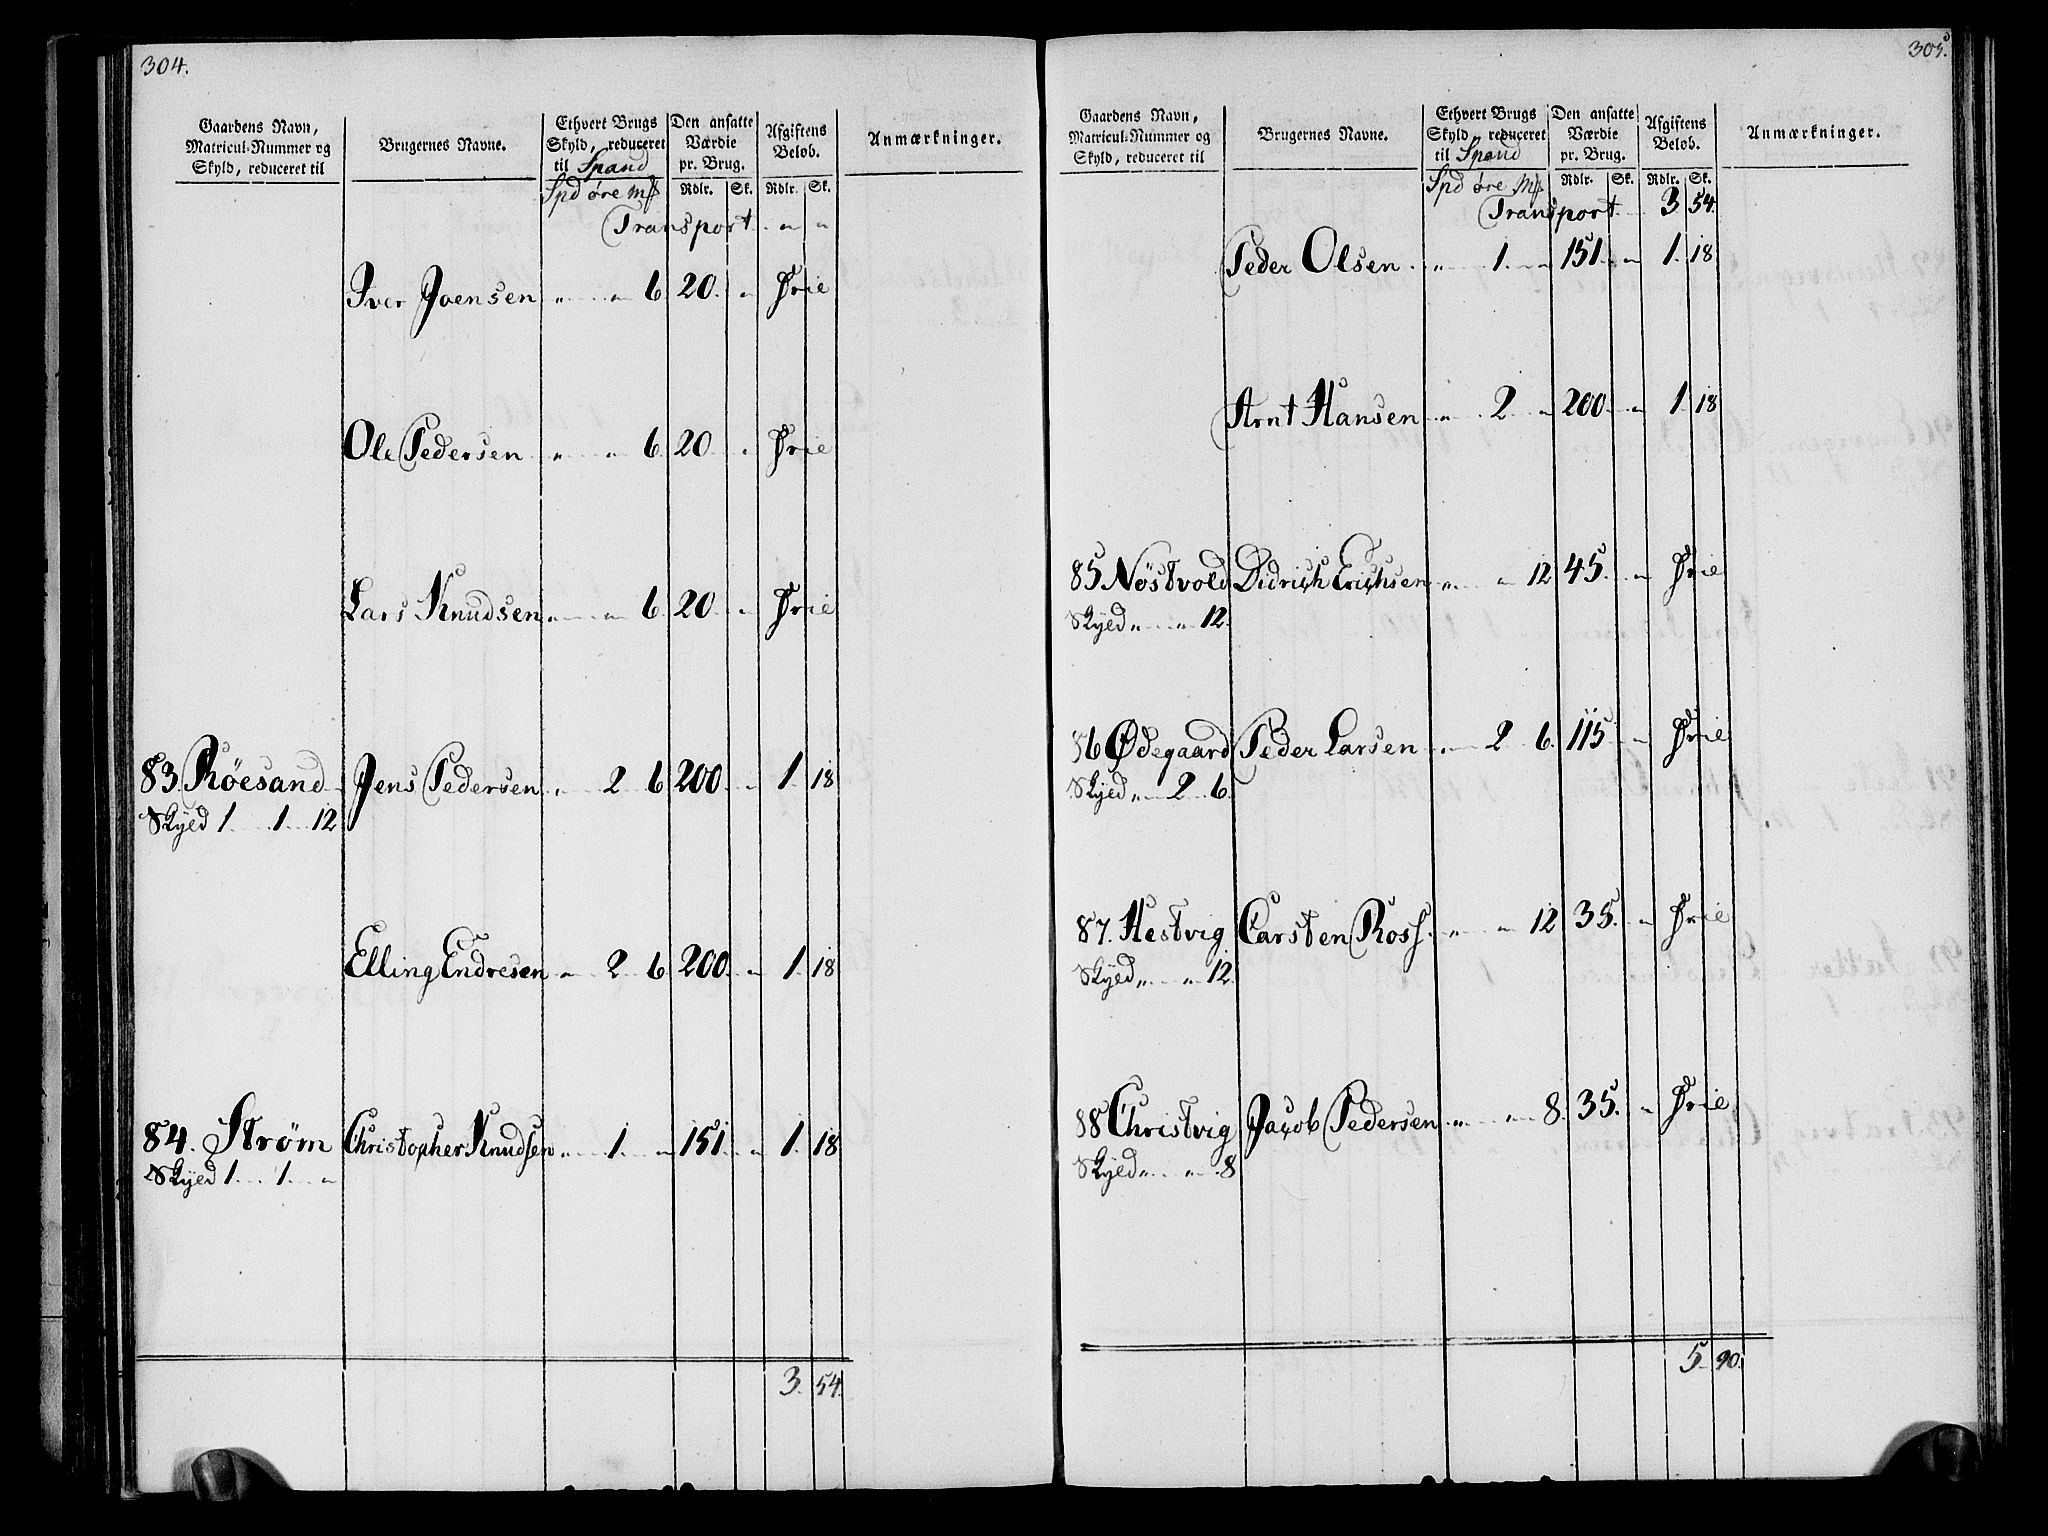 304.
Gaardens Navn, Matricul-Nummer og Skyld, reduceret til | Brugernes Navne. | Ethvert Brugs Skyld, reduceret til Spand | Den ansatte Værdie pr. Brug. | Afgiftens Beløb. | Anmærkninger.
Spd øre mk | Rdlr. Sk. | Rdlr. Sk.
Transport „ „
Iver Joensen „ „ 6 20. „ Frie
Ole Pedersen „ „ 6. 20 „ Frie
Lars Knudsen „ „ 6. 20. „ Frie
83. Röesand Jens Pedersen „ 2 6 200 „ 1. 18
Skyld 1. 1. 12
Elling Endresen „ 2 6 200. „ 1. 18
84. Strøm Christopher Knudsen „ 1. „ 151. „ 1. 18
Skyld 1. 1. „
3. 54.
305.
Gaardens Navn, Matricul-Nummer og Skyld, reduceret til | Brugernes Navne. | Ethvert Brugs Skyld, reduceret til Spand | Den ansatte Værdie pr. Brug. | Afgiftens Beløb. | Anmærkninger.
Spd øre mk | Rdlr. Sk. | Rdlr. Sk.
Transport 3 54.
Peder Olsen „ 1. „ 151. „ 1. 18
Arnt Hansen „ 2 „ 200. „ 1. 18
85 Nöstvold Didrich Erichsen „ „ 12 45. „ Frie
Skyld „ „ 12.
86 Ødegaard Peder Larsen „ 2 6. 115 „ Frie
Skyld „ 2 6.
87. Hestvig Carsten Ross. „ „ 12 35. „ Frie
Skyld „ „ 12.
88 Christvig Jacob Pedersen „ „ 8. 35. „ Frie
Skyld „ „ 8
5. 90.